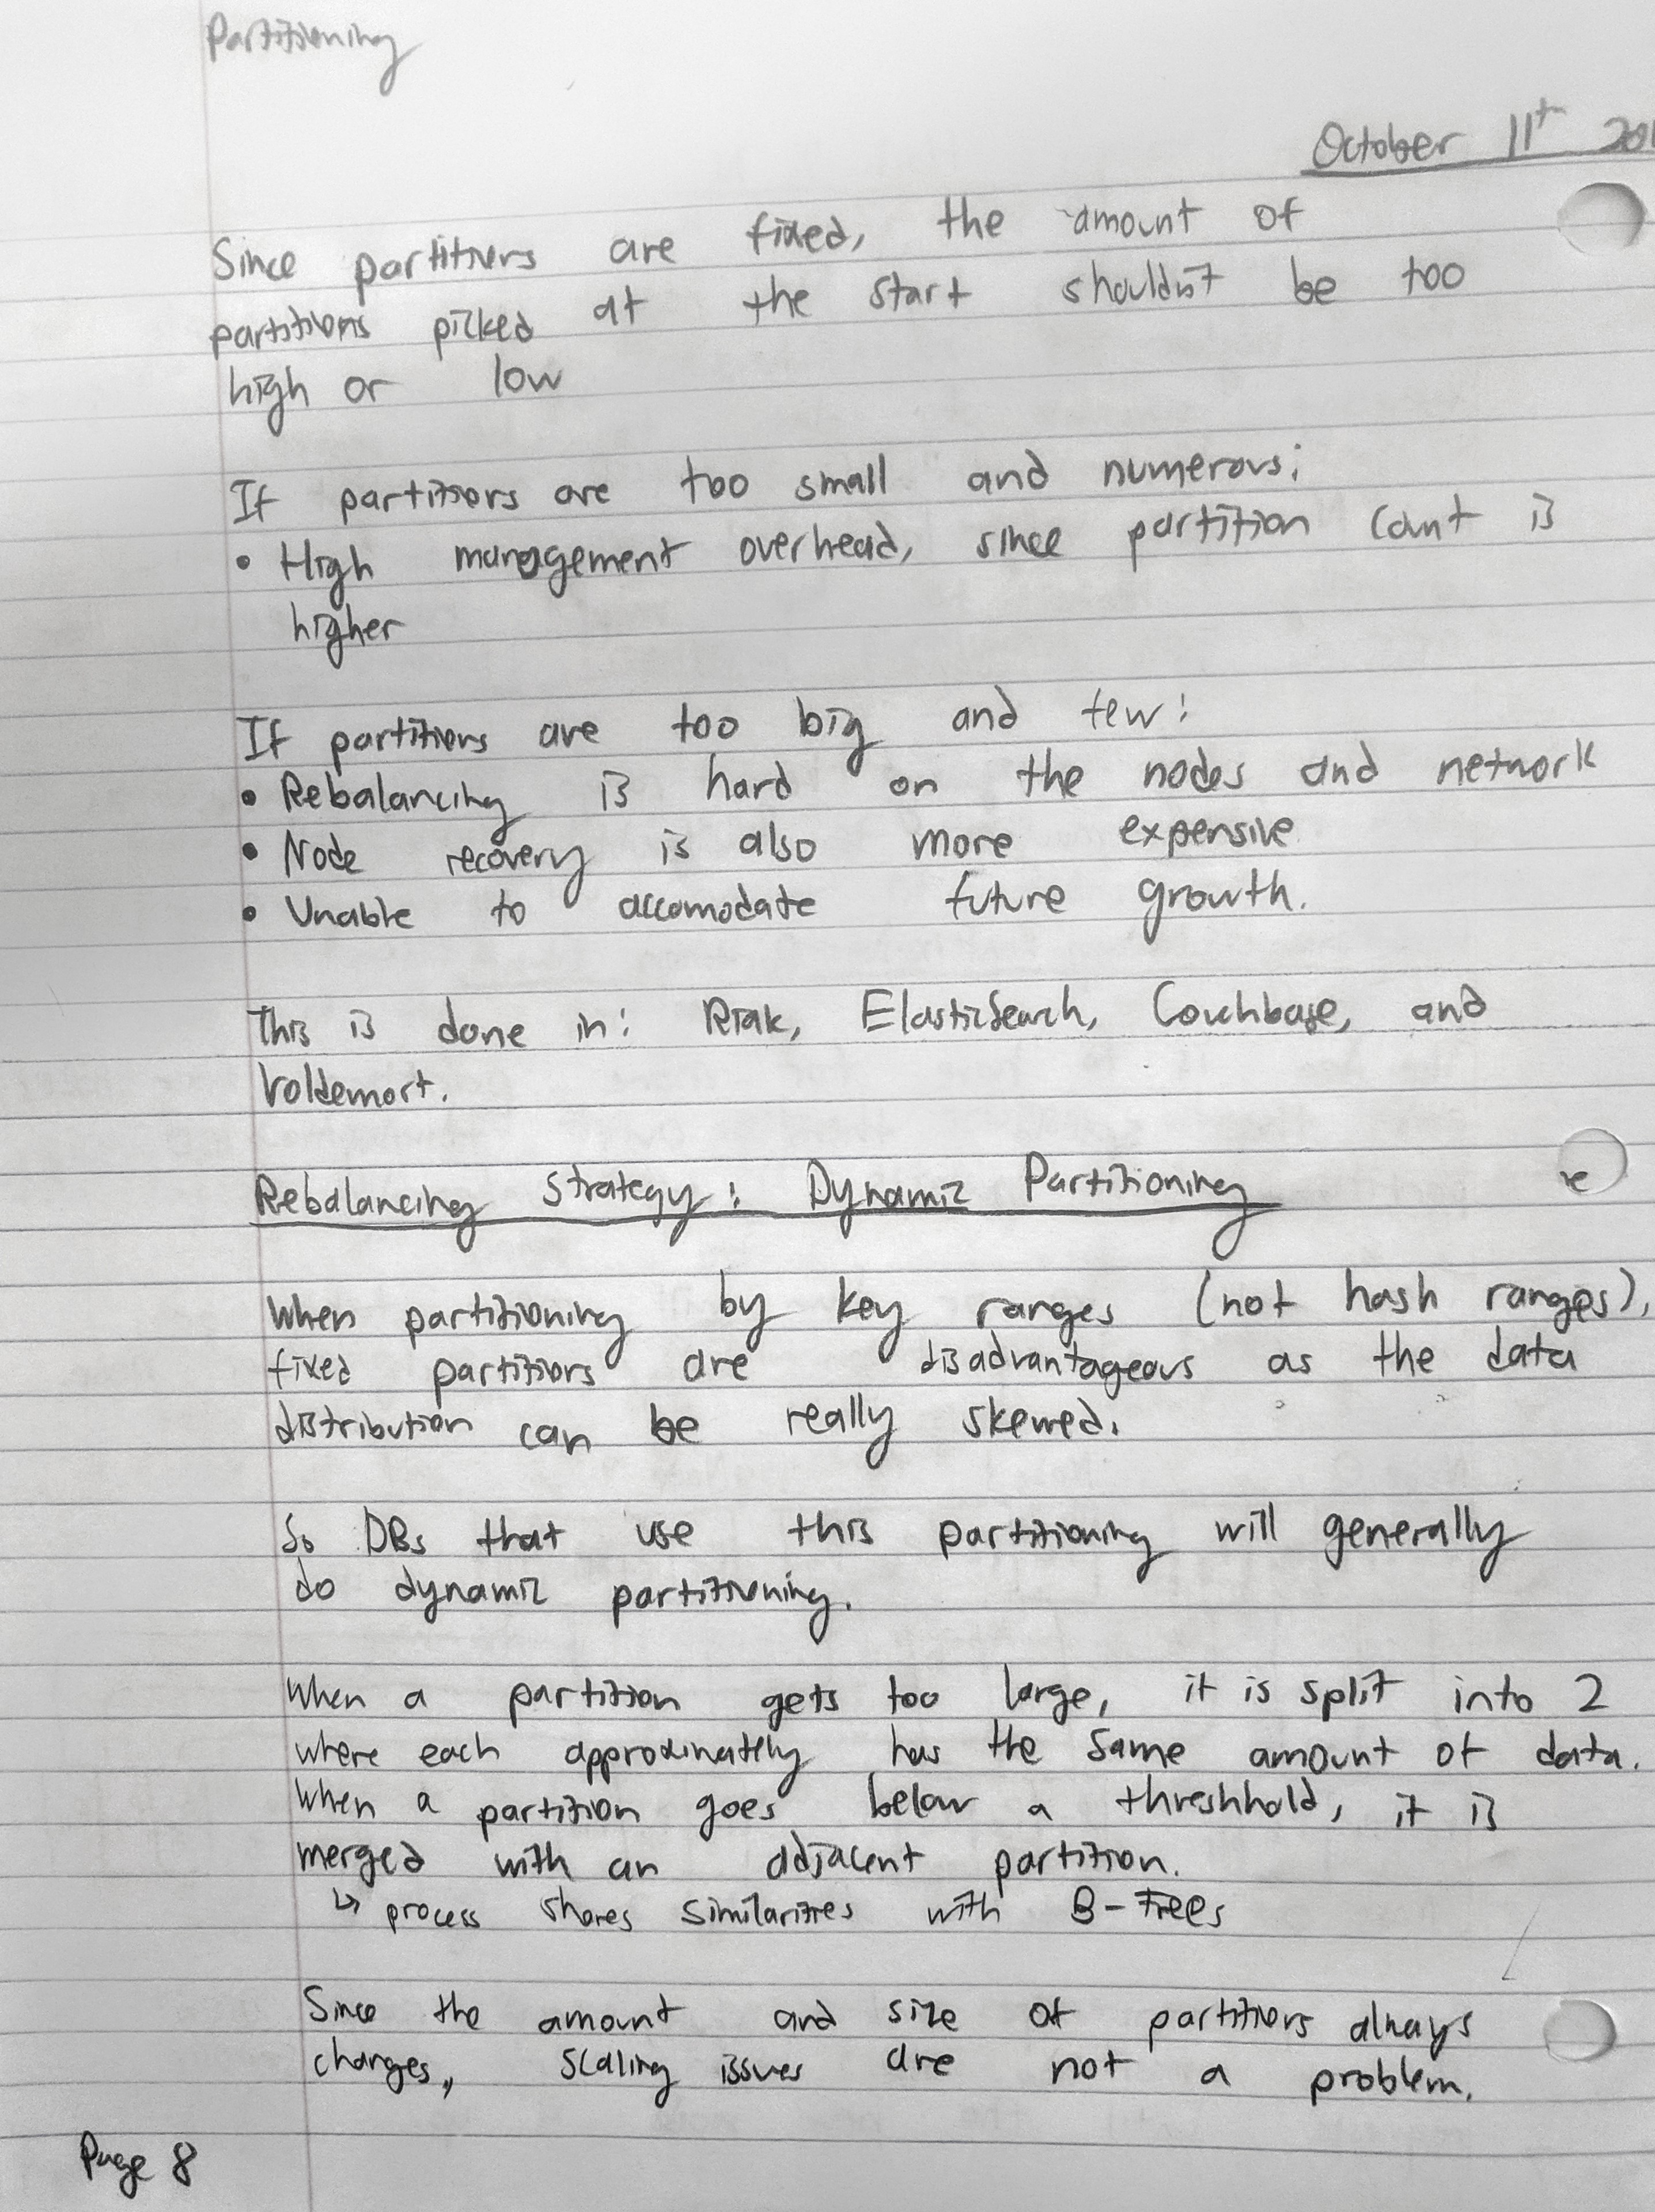 Partitioning
October 11th 201
Since partitions are fixed, the amount of
partitions picked at the start shouldn't be too
high or low
If partitions are too small and numerous:
• High management overhead, since partition count is
higher
If partitions are too big and few:
• Rebalancing is hard on the nodes and network
• Node recovery is also more expensive
• Unable to accomodate future growth.
This is done in: Riak, ElasticSearch, Couchbase, and
Voldemort.
Rebalancing Strategy: Dynamic Partitioning
When partitioning by key ranges (not hash ranges),
fixed partitions are disadvantageous as the data
distribution can be really skewed.
So DBs that use this partitioning will generally
do dynamic partitioning.
When a partition gets too large, it is split into 2
where each approximately has the same amount of data.
When a partition goes below a threshhold, it is
merged with an adjacent partition.
↳ process shares similarities with B-Trees
Since the amount and size of partitions always
changes, scaling issues are not a problem.
Page 8